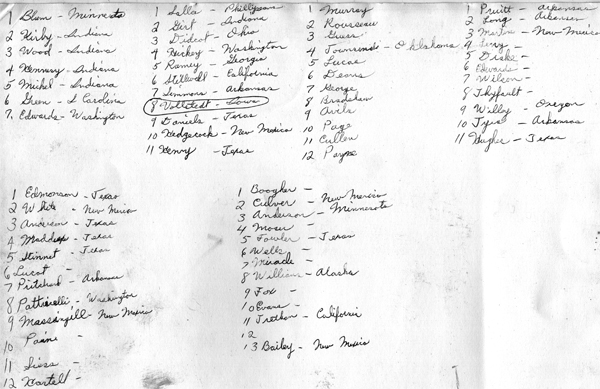 1 Blum - Minnesota
2 Kirby - Indiana
3 Wood - Indiana
4 Kennery - Indiana
5 Mickel - Indiana
6 Green - S Carolina
7. Edwards - Washington
1 Salla - Phillipean
2 Girt - Indiana
3 Dideot - Ohio
4 Hickey - Washington
5 Ramey - Georgia
6 Stillwell - California
7 Simmons - Arkansas
8 Vollstedt - Iowa
9 Daniels - Texas
10 Hedgecock - New Mexico
11 Henry - Texas
1 Murray
2 Rousseau
3 Guess
4 Townsend - Oklahoma
5 Lucas
6 Deans
7 George
8 Bradshaw
9 Avila
10 Page
11 Cullen
12 Payne
1 Pruitt - Arkansas
2 Long - Arkansas
3 Martin - New Mexico
4 Terry -
5 Drake -
6 Edwards -
7 Wilson -
8 Thyfault -
9 Willy - Oregon
10 Tyra - Arkansas
11 Hughes - Texas
1 Edmonson - Texas
2 White - New Mexico
3 Anderson - Texas
4 Maddux - Texas
5 Stinnet - Texas
6 Lucat -
7 Pritchard - Arkansas
8 Pattinelli - Washington
9 Massingill - New Mexico
10 Paine -
11 Siess -
12 Kartell -
1 Boogher -
2 Culver - New Mexico
3 Anderson - Minnesota
4 Moser -
5 Fowler - Texas
6 Wells
7 Miracle -
8 William - Alaska
9 Fox -
10 Evans -
11 Trotham - California
12
13 Bailey - New Mexico